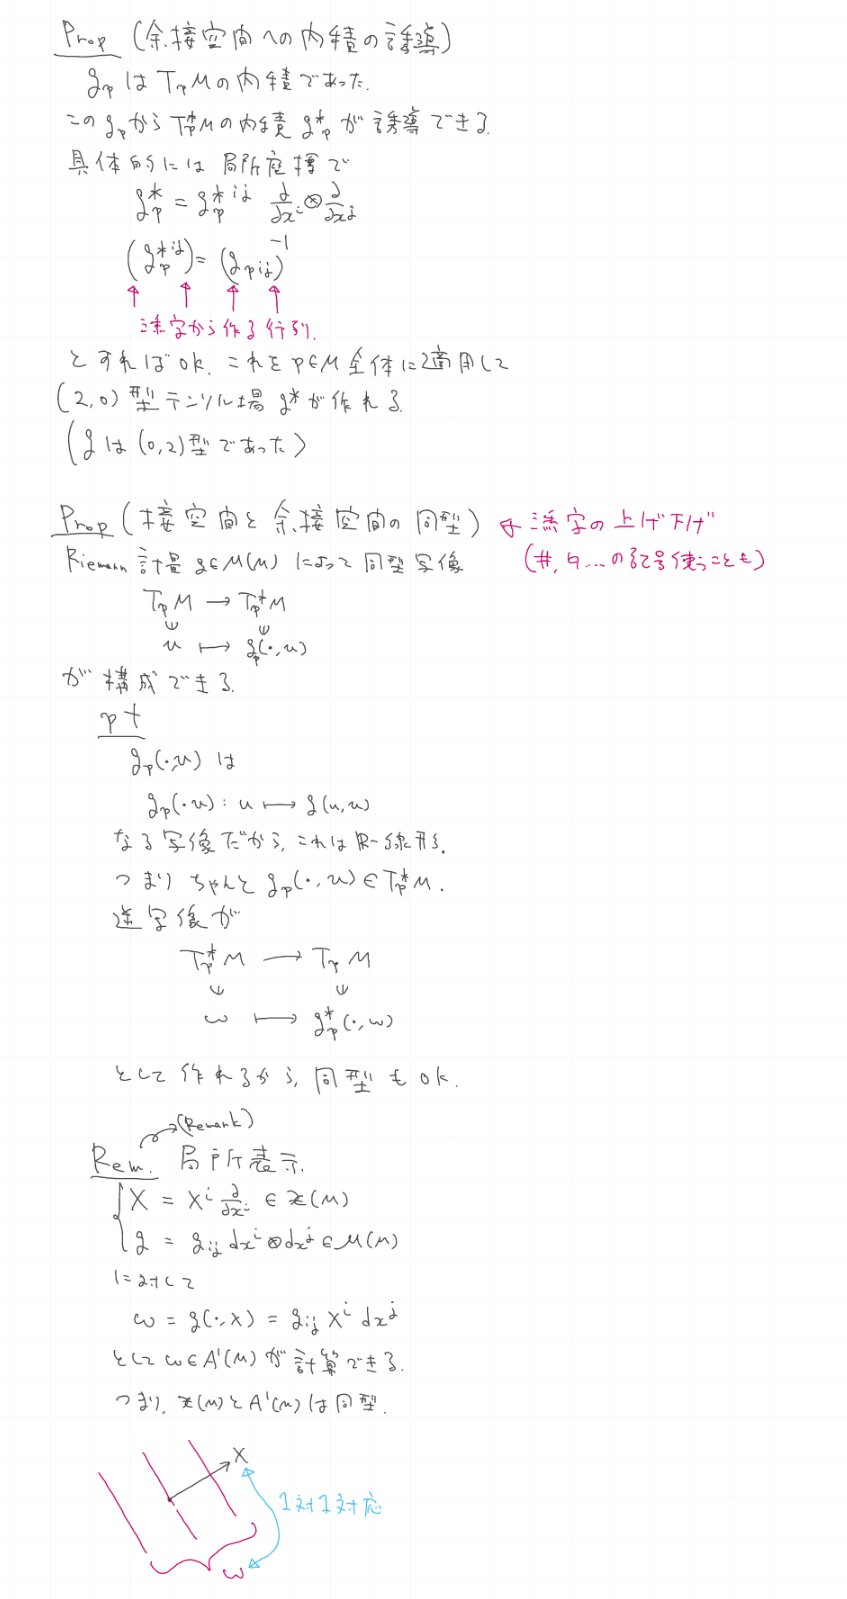 Prop (余接空間への内積の誘導)
g_p は T_pM の内積であった.
この g_p から T_p^*M の内積 g_p^* が誘導できる.
具体的には局所座標で
g_p^* = g_p^{*ij} ∂/∂x^i ⊗ ∂/∂x^j
(g_p^{*ij}) = (g_{pij})^{-1}
↑ ↑ ↑ ↑
添字から作る行列.
とすれば ok. これを p∈M 全体に適用して
(2,0) 型テンソル場 g^* が作れる.
(g は (0,2) 型であった)
Prop (接空間と余接空間の同型) ← 添字の上げ下げ
Riemann 計量 g∈M(M) によって同型写像 (#, ♮... の記号使うことも)
T_pM → T_p^*M
u ↦ g_p(·,u)
が構成できる.
pf
g_p(·,u) は
g_p(·u) : u ↦ g(u,u)
なる写像だから, これは R-線形.
つまり ちゃんと g_p(·,u) ∈ T_p^*M.
逆写像が
T_p^*M → T_pM
ω ↦ g_p^*(·,ω)
として作れるから, 同型も ok.
(Remark)
Rem. 局所表示.
X = X^i ∂/∂x^i ∈ X(M)
g = g_{ij} dx^i ⊗ dx^j ∈ M(M)
に対して
ω = g(·,X) = g_{ij} X^i dx^j
として ω∈A^1(M) が計算できる.
つまり, X(M) と A^1(M) は同型.
X
1対1対応
ω